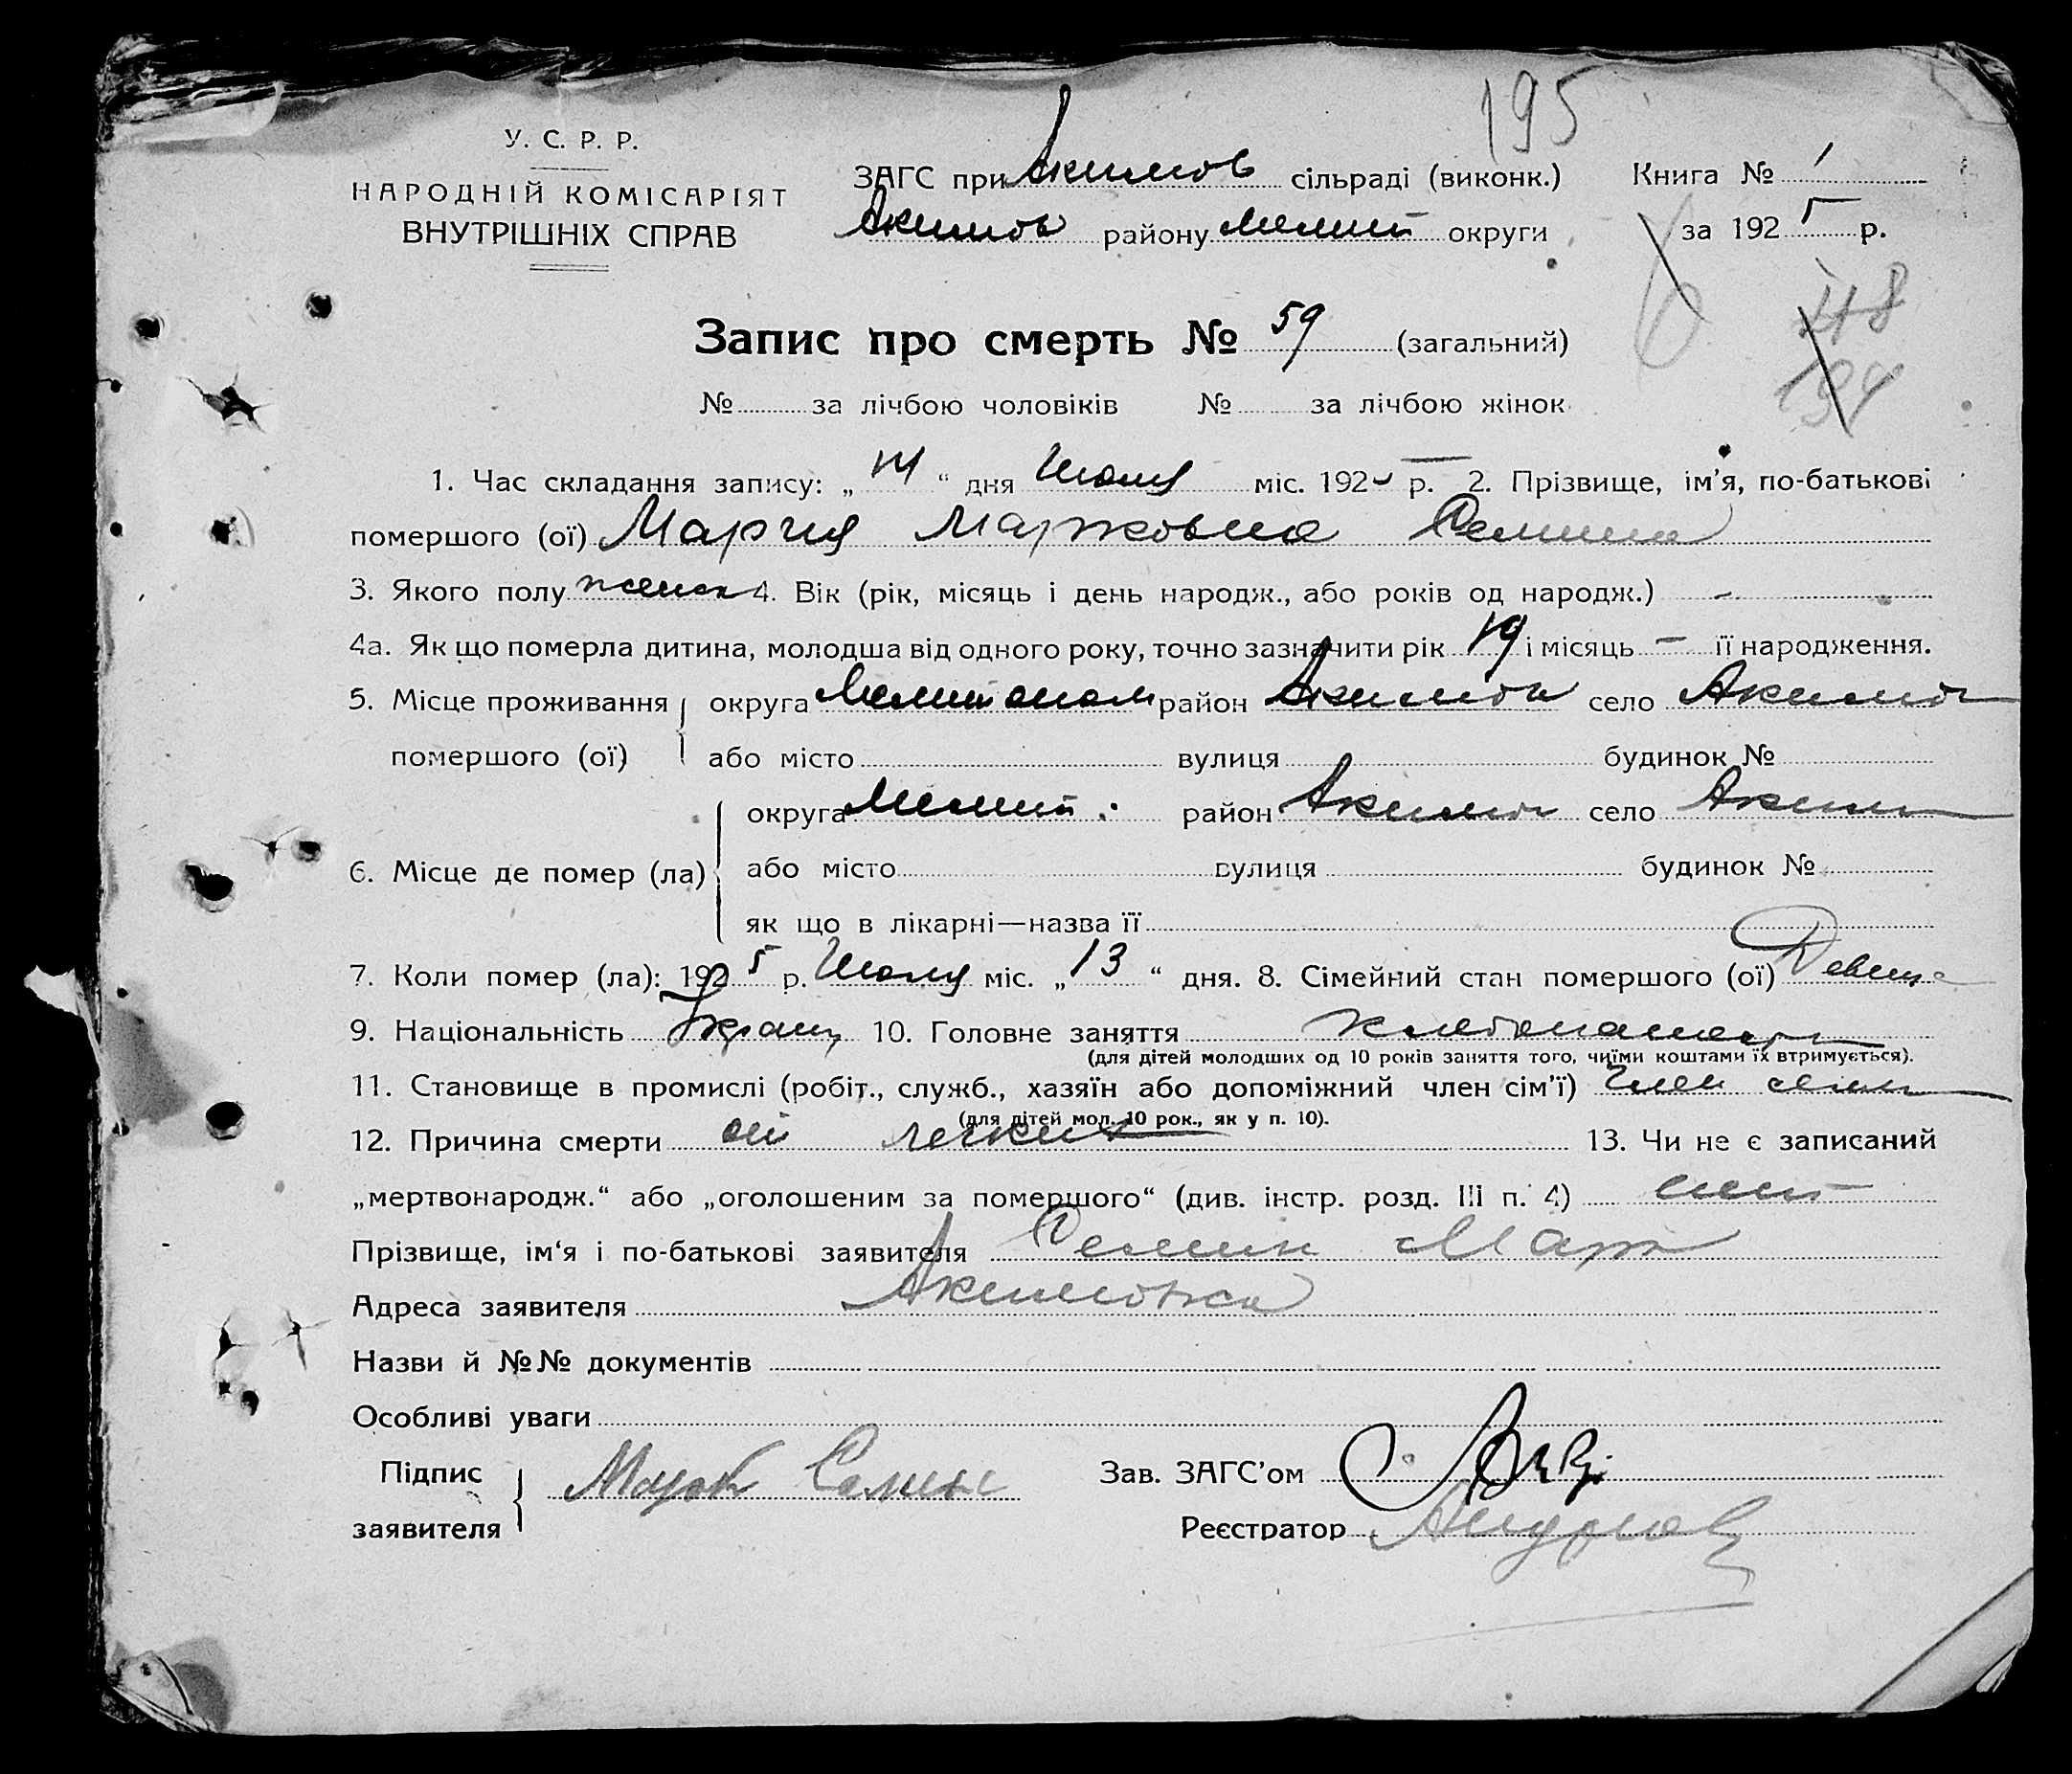 195
У. С. Р. Р.
НАРОДНІЙ КОМІСАРІЯТ
ВНУТРІШНІХ СПРАВ
ЗАГС при Акимов сільраді (виконк.)
Акимов району Мелит округи
Книга № 1
за 1925 р.
118
194
Запис про смерть № 59 (загальний)
№ за лічбою чоловіків № за лічбою жінок
1. Час складання запису: „ 14 “ дня Июля міс. 192 р. 2. Прізвище, ім’я, по-батькові
помершого (ої) Мария Марковна Семина
3. Якого полу женск 4. Вік (рік, місяць і день народж., або років од народж.) –
4а. Як що померла дитина, молодша від одного року, точно зазначити рік 19 і місяць – її народження.
5. Місце проживання округа Мелитопол район Акимов село Акимов
помершого (ої) або місто вулиця будинок №
округа Мелит. район Акимов село Аким
6. Місце де помер (ла) або місто вулиця будинок №
як що в лікарні—назва її
7. Коли помер (ла): 1925 р. Июля міс. „ 13 “ дня. 8. Сімейний стан помершого (ої) Девица
9. Національність Украин 10. Головне заняття хлебопашест
(для дітей молодших од 10 років заняття того, чиїми коштами їх втримується).
11. Становище в промислі (робіт., служб., хазяїн або допоміжний член сім’ї) член семи
(для дітей мол. 10 рок., як у п. 10).
12. Причина смерти от легких 13. Чи не є записаний
„мертвонародж.“ або „оголошеним за помершого“ (див. інстр. розд. III п. 4) нет
Прізвище, ім‘я і по-батькові заявителя Семин Марк
Адреса заявителя Акимовка
Назви й №№ документів
Особливі уваги
Підпис
заявителя
Марк Семин
Зав. ЗАГС’ом
Реєстратор